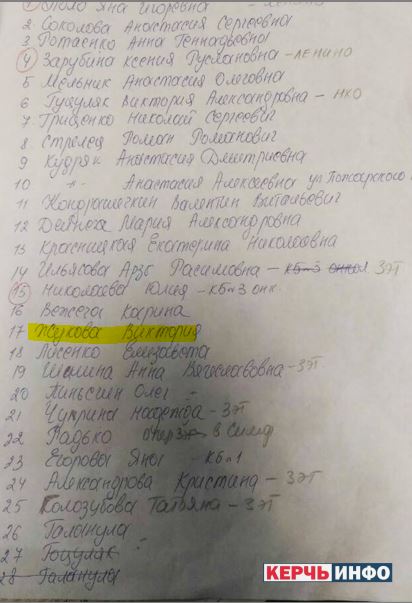 Яна Игоревна
2 Соколова Анастасия Сергеевна
3 Потаенко Анна Геннадьевна
4 Зарубина Ксения Руслановна - ЛЕНИНО
5 Мельник Анастасия Олеговна
6 Гуцуляк Виктория Александровна - НХО
7 Гриценко Николай Сергеевич
8 Стрелец Роман Романович
9 Кудряк Анастасия Дмитриевна
10 -"- Анастасия Алексеевна ул
11 Валентин Витальевич
12 Мария Александровна
13 Красницкая Екатерина Николаевна
14 Ильясова Арзе Расимовна - КБ№3 ЭТ
15 Николаева Юлия - КБ№3 онк.
16 Вежега Карина
17 Жукова Виктория
18 Лисенко Елизавета
19 Шишина Анна Вячеславовна - ЭТ
20 Олег
21 Чуприна Надежда - ЭТ
22 Радько в Симф
23 Егорова Яна - КБ№1
24 Александрова Кристина - ЭТ
25 Колозубова Татьяна - ЭТ
26 Галанула
27 Гоцуляк
28 Галанула
КЕРЧЬИНФО